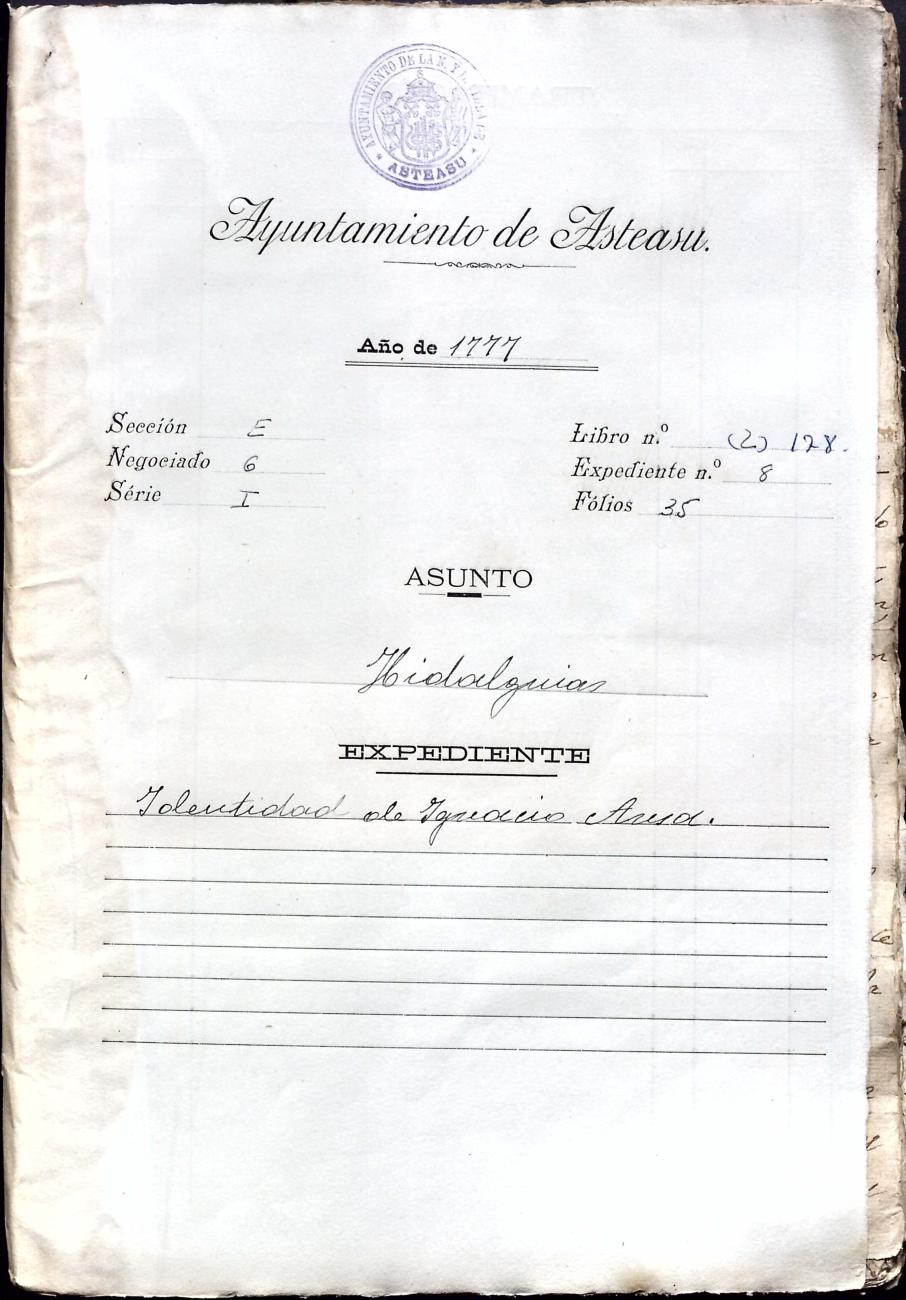 AYUNTAMIENTO DE LA N. Y L. VILLA DE
ASTEASU
Ayuntamiento de Asteasu.
Año de 1777
Sección E
Negociado 6
Série I
Libro n.º (2) 128.
Expediente n.º 8
Fólios 35
ASUNTO
Hidalguias
EXPEDIENTE
Identidad de Ignacio